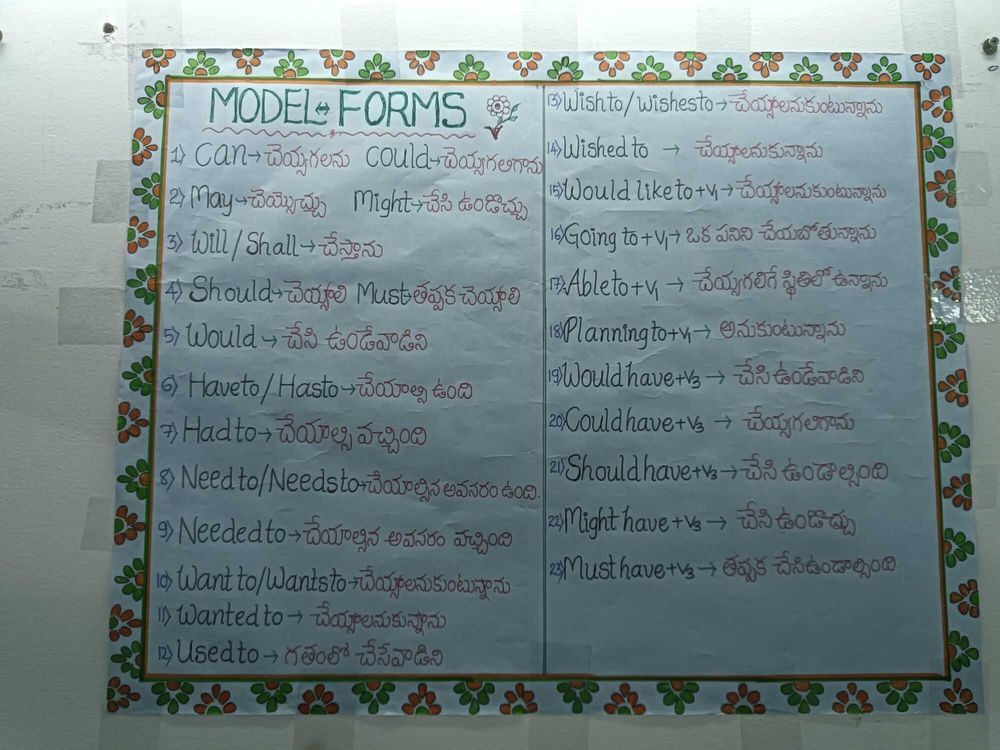 MODEL ↔ FORMS
1) Can → చెయ్యగలను Could → చెయ్యగలిగాను
2) May → చెయ్యొచ్చు Might → చేసి ఉండొచ్చు
3) Will / Shall → చేస్తాను
4) Should → చెయ్యాలి Must → తప్పక చెయ్యాలి
5) Would → చేసి ఉండేవాడిని
6) Have to / Has to → చేయాల్సి ఉంది
7) Had to → చేయాల్సి వచ్చింది
8) Need to / Needs to → చేయాల్సిన అవసరం ఉంది.
9) Needed to → చేయాల్సిన అవసరం వచ్చింది
10) Want to / Wants to → చేయ్యాలనుకుంటున్నాను
11) Wanted to → చేయ్యాలనుకున్నాను
12) Used to → గతంలో చేసేవాడిని
13) Wish to / Wishes to → చేయ్యాలనుకుంటున్నాను
14) Wished to → చేయ్యాలనుకున్నాను
15) Would like to + V1 → చేయ్యాలనుకుంటున్నాను
16) Going to + V1 → ఒక పనిని చేయబోతున్నాను
17) Able to + V1 → చేయ్యగలిగే స్థితిలో ఉన్నాను
18) Planning to + V1 → అనుకుంటున్నాను
19) Would have + V3 → చేసి ఉండేవాడిని
20) Could have + V3 → చేయ్యగలిగాను
21) Should have + V3 → చేసి ఉండాల్సింది
22) Might have + V3 → చేసి ఉండొచ్చు
23) Must have + V3 → తప్పక చేసిఉండాల్సింది